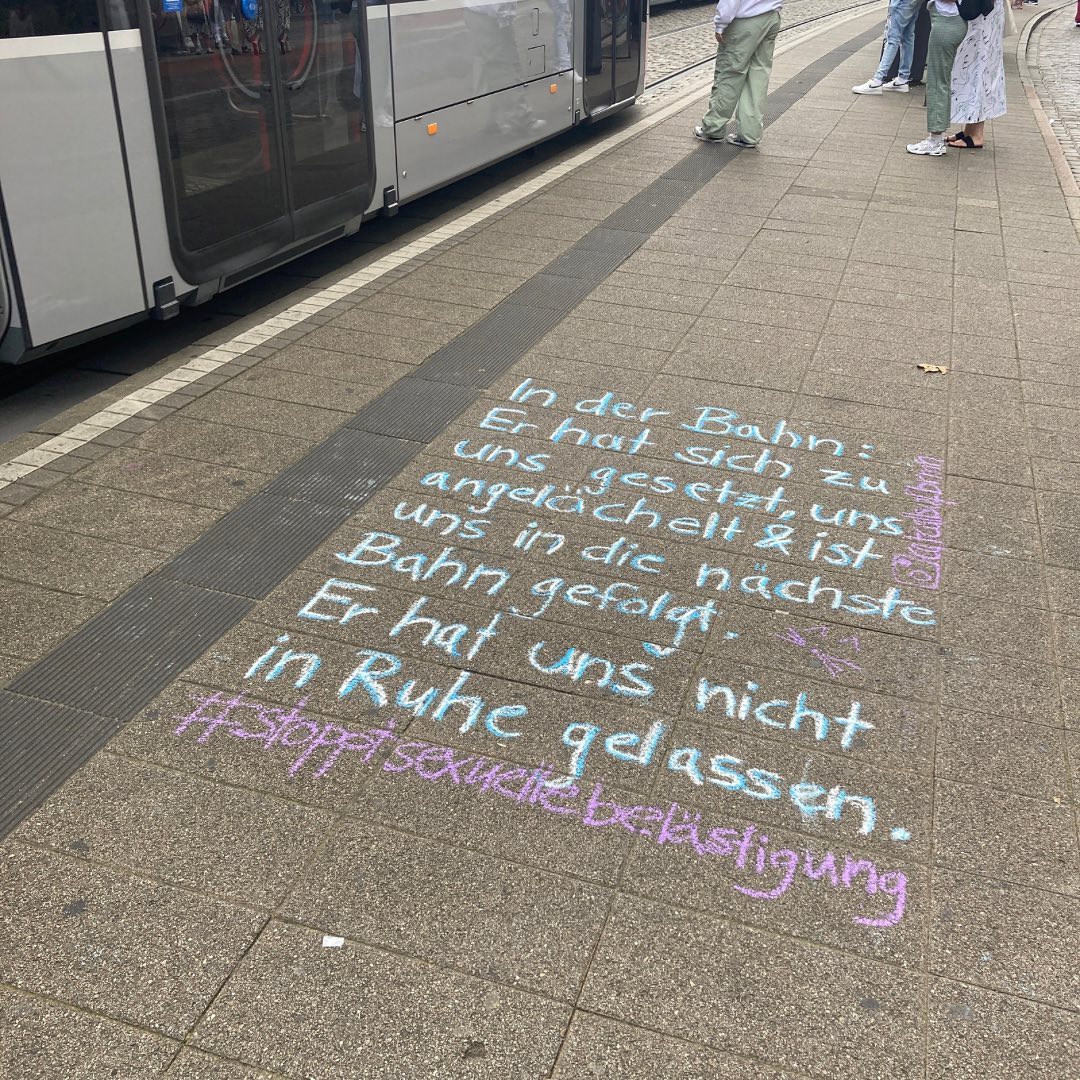 In der Bahn:
Er hat sich zu
uns gesetzt, uns
angelächelt & ist
uns in die nächste
Bahn gefolgt.
Er hat uns nicht
in Ruhe gelassen.
#stopptsexuellebelästigung